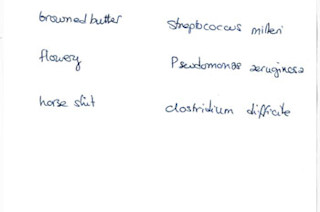 browned butter Streptococcus milleri
flowery Pseudomonas aeruginosa
horse shit clostridium difficile